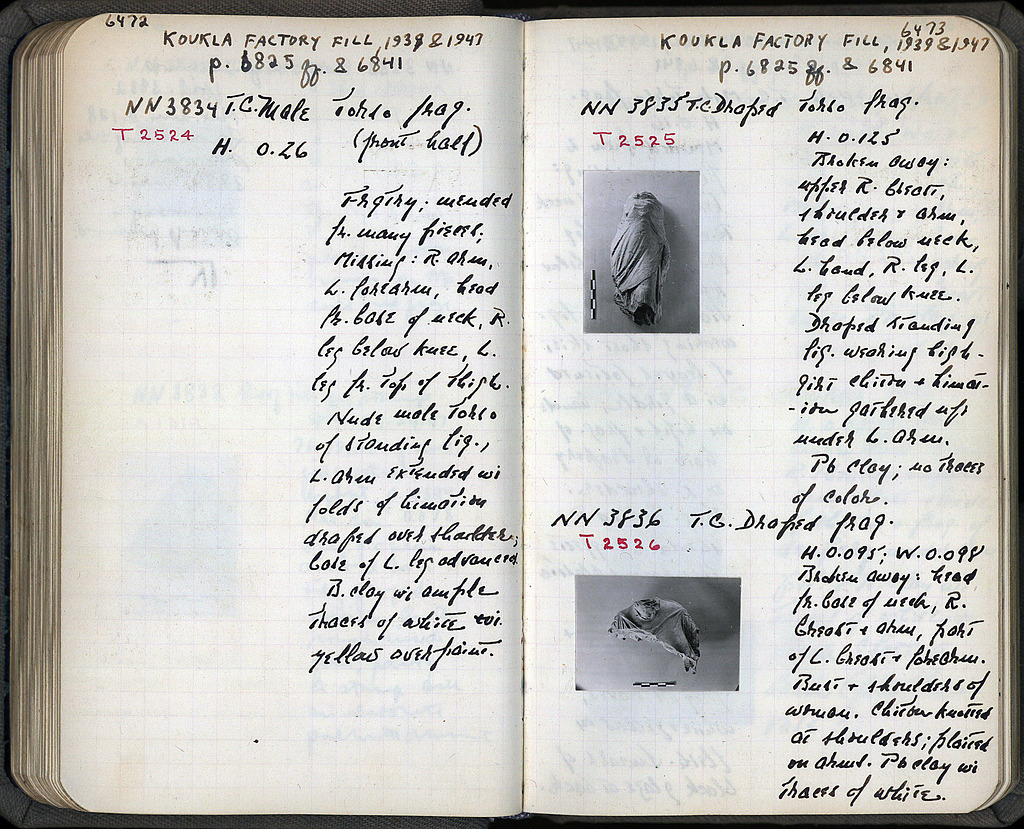 6472
KOUKLA FACTORY FILL, 1939 & 1947
p. 6825 ff. & 6841
NN 3834 T.C. Male Torso frag.
T 2524
(front half)
H. 0.26
Frgtry; mended
fr. many pieces,
Missing: R. arm,
L. forearm, head
fr. base of neck, R.
leg below knee, L.
leg fr. top of thigh.
Nude male torso
of standing fig.,
L. arm extended wi
folds of himation
draped over shoulder;
base of L. leg advanced.
B. clay wi ample
traces of white wi.
yellow overpaint.
6473
KOUKLA FACTORY FILL, 1939 & 1947
p. 6825 ff. & 6841
NN 3835 T.C. Draped Torso frag.
T 2525
H. 0.125
Broken away:
upper R. breast,
shoulder + arm,
head below neck,
L. hand, R. leg, L.
leg below knee.
Draped standing
fig. wearing high-
girt chiton + himat-
-ion gathered up
under L. arm.
Pb clay; no traces
of color.
NN 3836 T.C. Draped frag.
T 2526
H. 0.095; W. 0.098
Broken away: head
fr. base of neck, R.
breast + arm, part
of L. breast + forearm.
Bust + shoulders of
woman. Chiton knotted
at shoulders; plaited
on arms. Pb clay wi
traces of white.